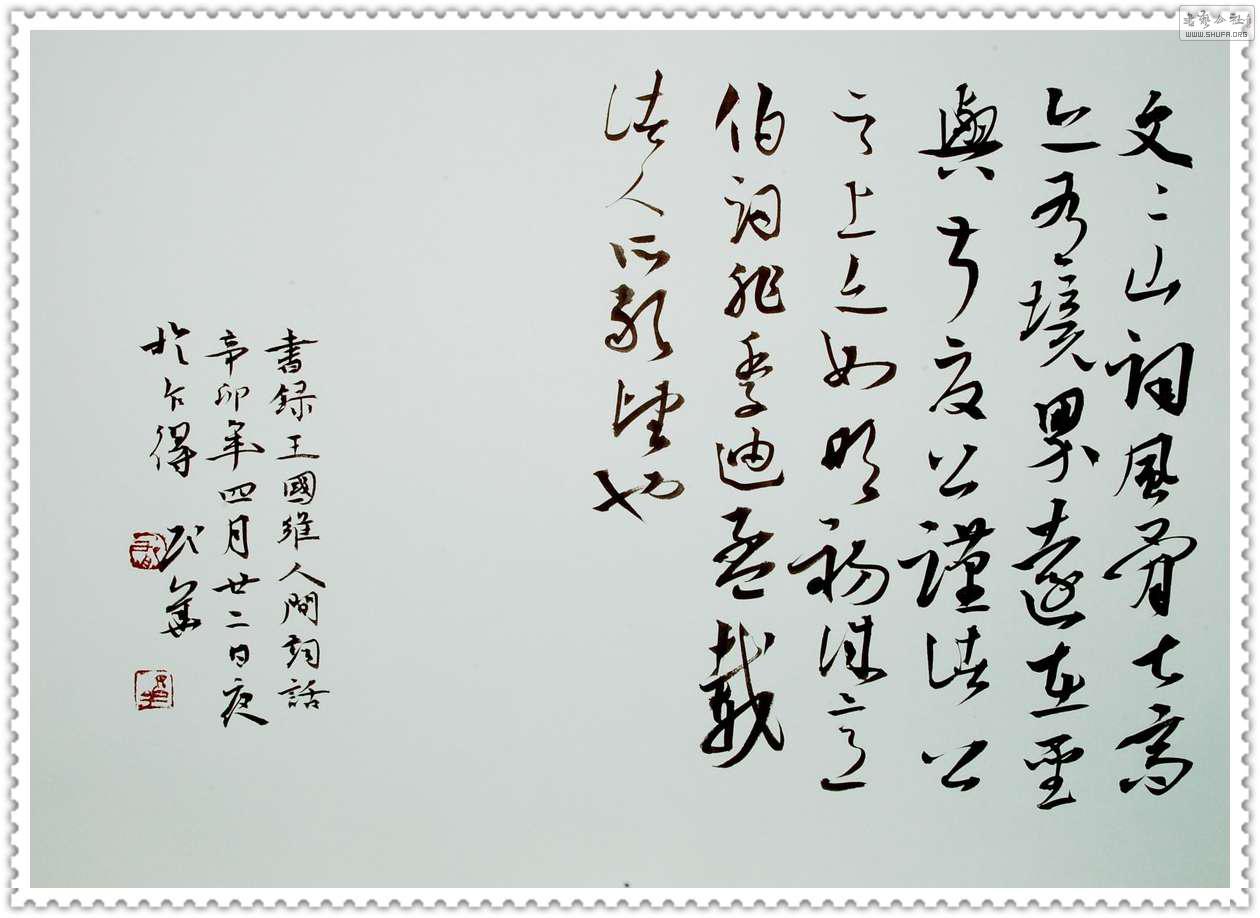 文〻山詞風骨甚高
亦有境界遠在聖
與叔夏公謹諸公
之上亦如明初誠意
伯詞非季迪孟載
諸人所敢望也
書録王國維人間詞話
辛卯年四月廿二日夜
於乍得
书艺公社
WWW.SHUFA.ORG